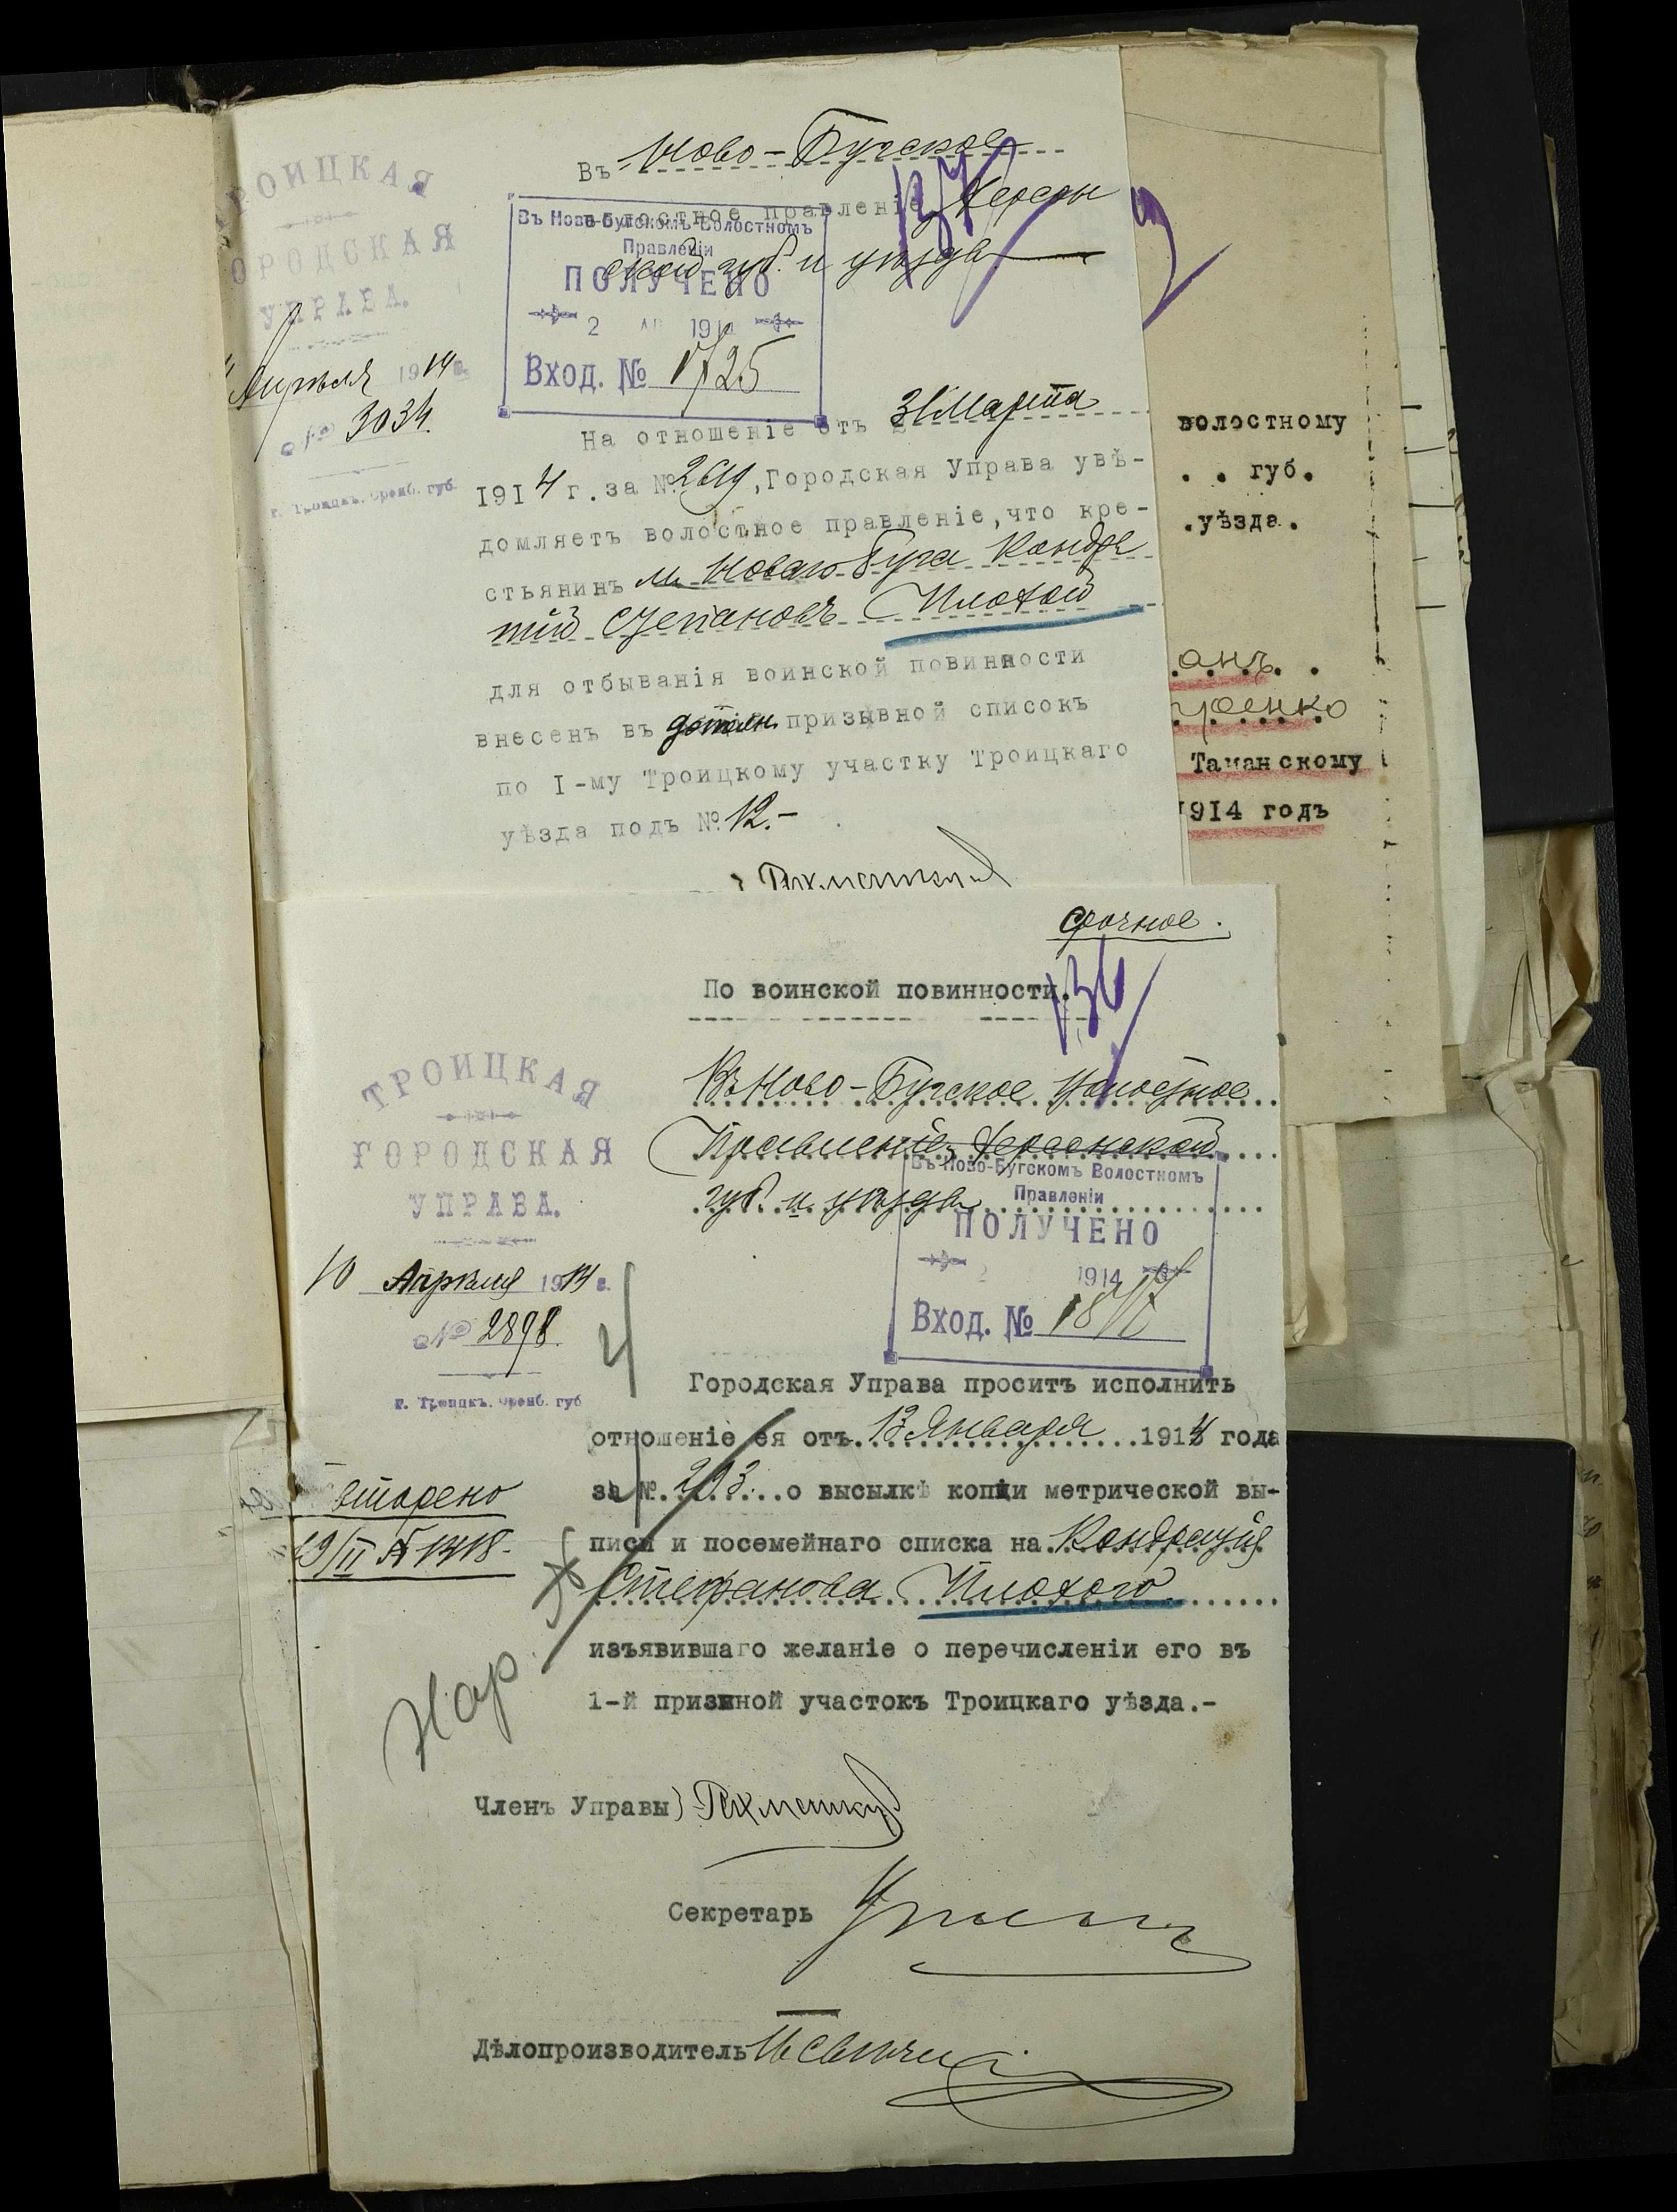 ТРОИЦКАЯ
ГОРОДСКАЯ
УПРАВА.
Апрѣля 1914 г.
№ 3034.
г. Троицкъ. Оренб. губ.
Въ Ново-Бугское
волостное правленіе Херсон
ской губ. и уѣзда
137
Въ Ново-Бугскомъ Волостномъ
Правленіи
ПОЛУЧЕНО
2 АП 191
Вход. № 1725
На отношеніе отъ 31 Марта
1914 г. за № 2619, Городская Управа увѣ-
домляетъ волостное правленіе, что кре-
стьянинъ м. Новаго Буга Кондра
тій Степановъ Плохой
для отбыванія воинской повинности
внесенъ въ дополн. призывной списокъ
по I-му Троицкому участку Троицкаго
уѣзда подъ № 12.-
волостному
. . губ.
.уѣзда.
анъ. .
енко
Таманскому
1914 годъ
срочное.
По воинской повинности.
136
ТРОИЦКАЯ
ГОРОДСКАЯ
УПРАВА.
10 Апрѣля 1914 г.
№ 2898
г. Троицкъ. Оренб. губ
Въ Ново-Бугское Волостное
Правленіе, Херсонской
губ. и уѣзда
Въ Ново-Бугскомъ Волостномъ
Правленіи
ПОЛУЧЕНО
2 1914
Вход. № 18
Городская Управа проситъ исполнить
отношеніе ея отъ 13 Января 1914 года
за № 293 о высылкѣ копіи метрической вы-
писи и посемейнаго списка на Кондратія
Степанова Плохого
изъявившаго желаніе о перечисленіи его въ
1-й призыной участокъ Троицкаго уѣзда.-
19/II № 1418.
Нар.
Членъ Управы
Секретарь
Дѣлопроизводитель